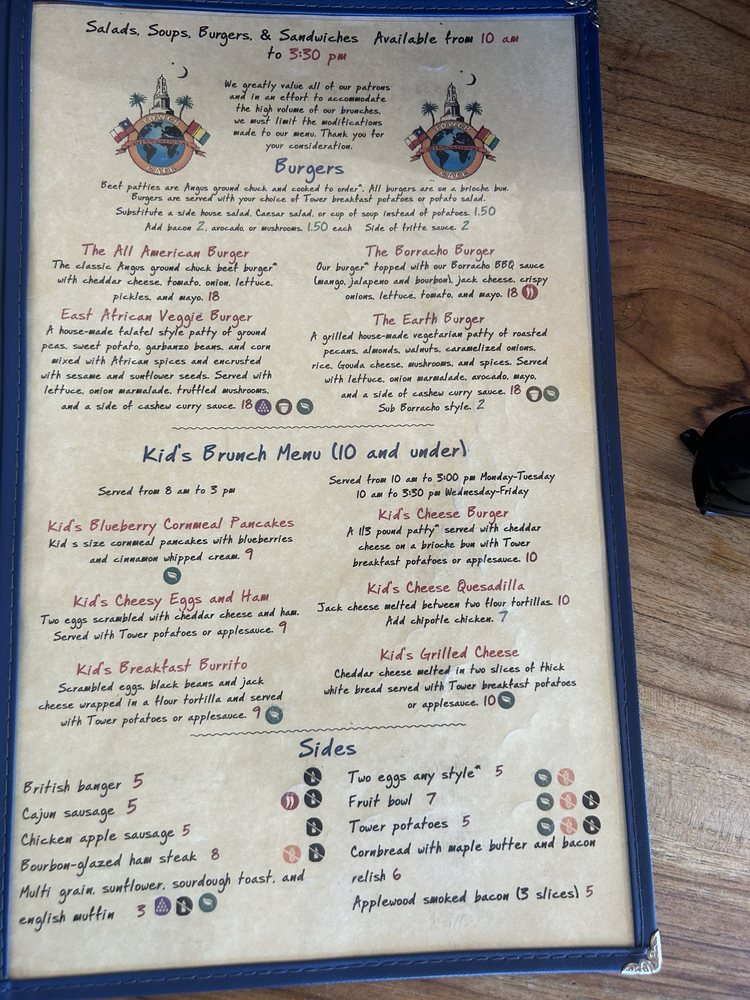 Salads, Soups, Burgers, & Sandwiches Available from 10 am
to 3:30 pm
We greatly value all of our patrons
and in an effort to accommodate
the high volume of our brunches,
we must limit the modifications
made to our menu. Thank you for
your consideration.
TOWER
INTERNATIONAL
CAFE
TOWER
INTERNATIONAL
CAFE
Burgers
Beef patties are Angus ground chuck and cooked to order*. All burgers are on a brioche bun.
Burgers are served with your choice of Tower breakfast potatoes or potato salad.
Substitute a side house salad, Caesar salad, or cup of soup instead of potatoes. 1.50
Add bacon 2, avocado, or mushrooms, 1.50 each Side of fritte sauce. 2
The All American Burger
The classic Angus ground chuck beef burger*
with cheddar cheese, tomato, onion, lettuce,
pickles, and mayo. 18
East African Veggie Burger
A house-made falafel style patty of ground
peas, sweet potato, garbanzo beans, and corn
mixed with African spices and encrusted
with sesame and sunflower seeds. Served with
lettuce, onion marmalade, truffled mushrooms,
and a side of cashew curry sauce. 18
The Borracho Burger
Our burger* topped with our Borracho BBQ sauce
(mango, jalapeno and bourbon), jack cheese, crispy
onions, lettuce, tomato, and mayo. 18
The Earth Burger
A grilled house-made vegetarian patty of roasted
pecans, almonds, walnuts, caramelized onions,
rice, Gouda cheese, mushrooms, and spices. Served
with lettuce, onion marmalade, avocado, mayo,
and a side of cashew curry sauce. 18
Sub Borracho style. 2
Kid's Brunch Menu (10 and under)
Served from 8 am to 3 pm
Kid's Blueberry Cornmeal Pancakes
Kid s size cornmeal pancakes with blueberries
and cinnamon whipped cream. 9
Kid's Cheesy Eggs and Ham
Two eggs scrambled with cheddar cheese and ham.
Served with Tower potatoes or applesauce. 9
Kid's Breakfast Burrito
Scrambled eggs, black beans and jack
cheese wrapped in a flour tortilla and served
with Tower potatoes or applesauce. 9
Served from 10 am to 3:00 pm Monday-Tuesday
10 am to 3:30 pm Wednesday-Friday
Kid's Cheese Burger
A 1/3 pound patty* served with cheddar
cheese on a brioche bun with Tower
breakfast potatoes or applesauce. 10
Kid's Cheese Quesadilla
Jack cheese melted between two flour tortillas. 10
Add chipotle chicken. 7
Kid's Grilled Cheese
Cheddar cheese melted in two slices of thick
white bread served with Tower breakfast potatoes
or applesauce. 10
Sides
British banger 5
Cajun sausage 5
Chicken apple sausage 5
Bourbon-glazed ham steak 8
Multi grain, sunflower, sourdough toast, and
english muffin 3
Two eggs any style* 5
Fruit bowl 7
Tower potatoes 5
Cornbread with maple butter and bacon
relish 6
Applewood smoked bacon (3 slices) 5